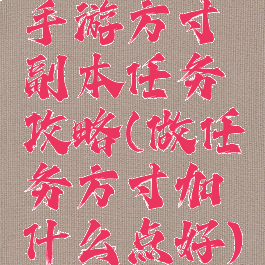 手游方寸
副本任务
攻略(做任
务方寸加
什么点好)